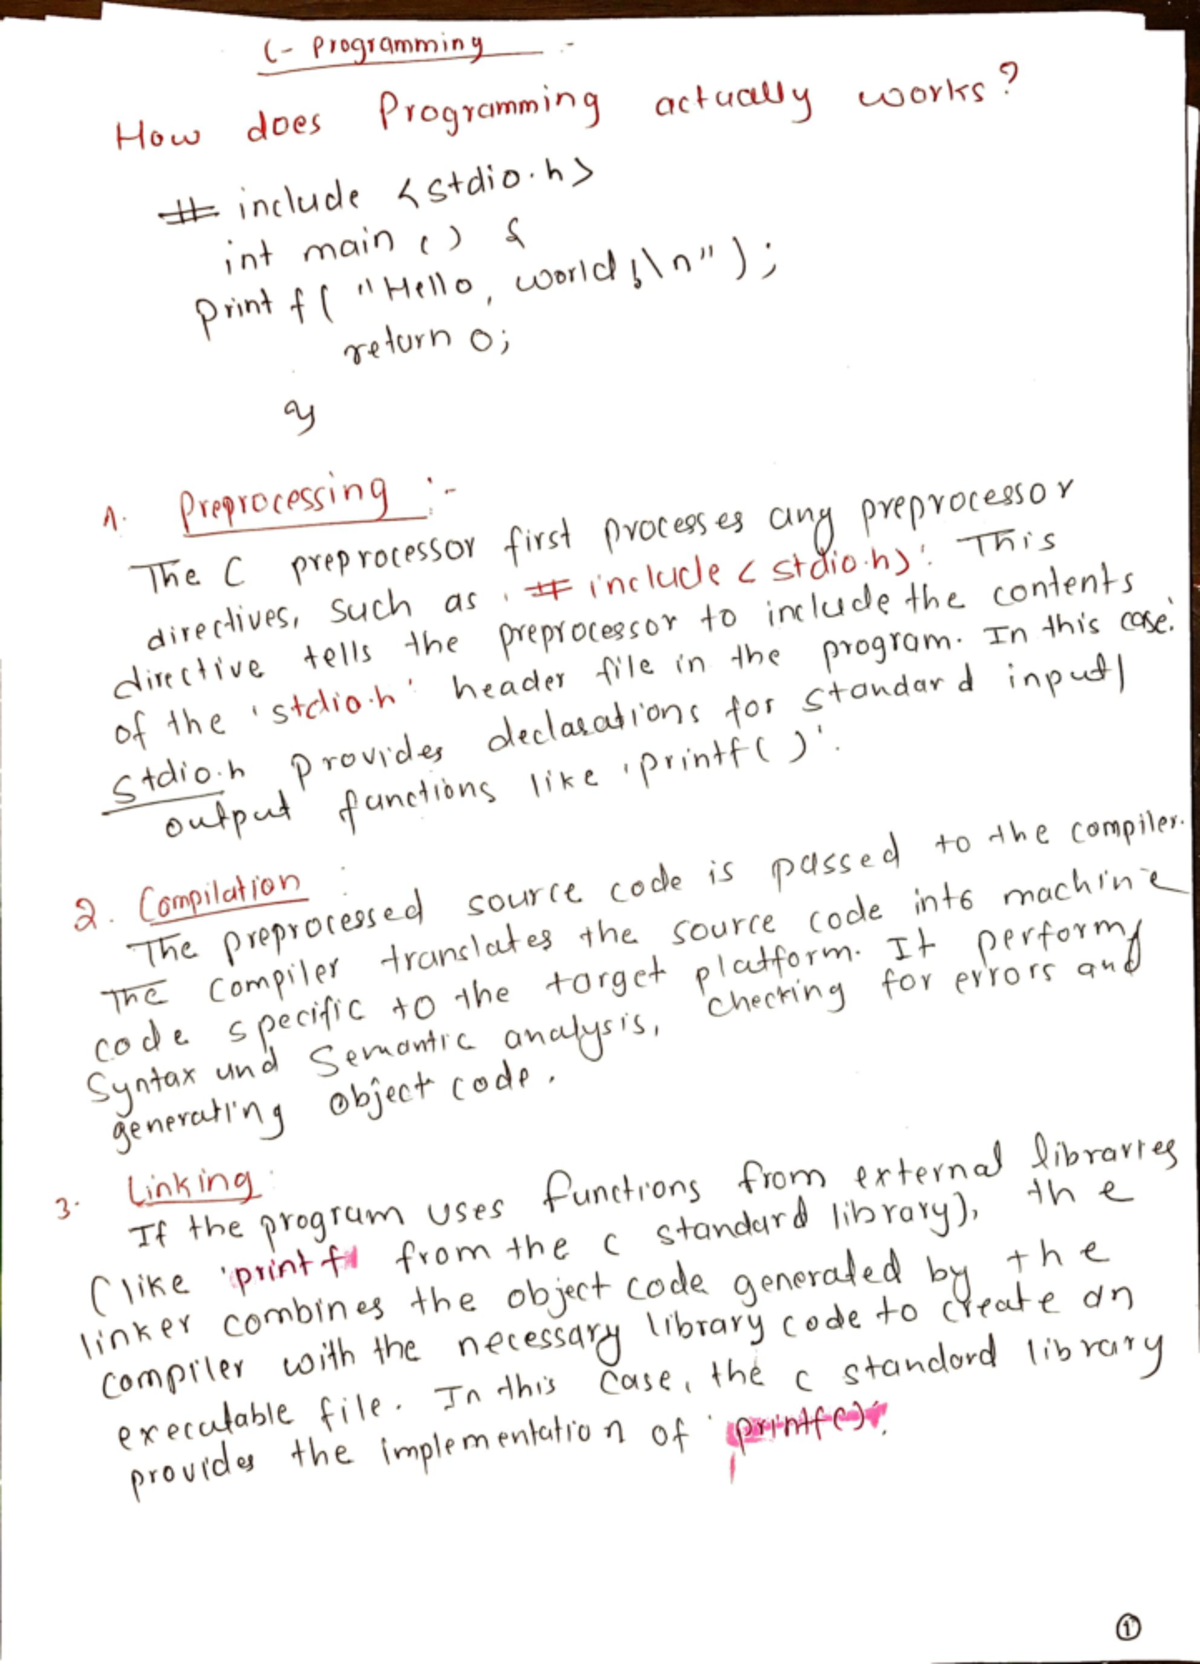 C- Programming :-
How does Programming actually works?
# include <stdio.h>
int main () {
printf( "Hello, world!\n");
return 0;
}
1. Preprocessing :-
The C preprocessor first processes any preprocessor
directives, such as '# include <stdio.h>'. This
directive tells the preprocessor to include the contents
of the 'stdio.h' header file in the program. In this case.
stdio.h provides declarations for standard input/
output functions like 'printf()'.
2. Compilation :
The preprocessed source code is passed to the compiler.
The compiler translates the source code into machine
code specific to the target platform. It performs
Syntax and Semantic analysis, checking for errors and
generating object code.
3. Linking :
If the program uses functions from external libraries
(like 'printf' from the C standard library), the
linker combines the object code generated by the
compiler with the necessary library code to create an
executable file. In this case, the C standard library
provides the implementation of 'printf()'.
1